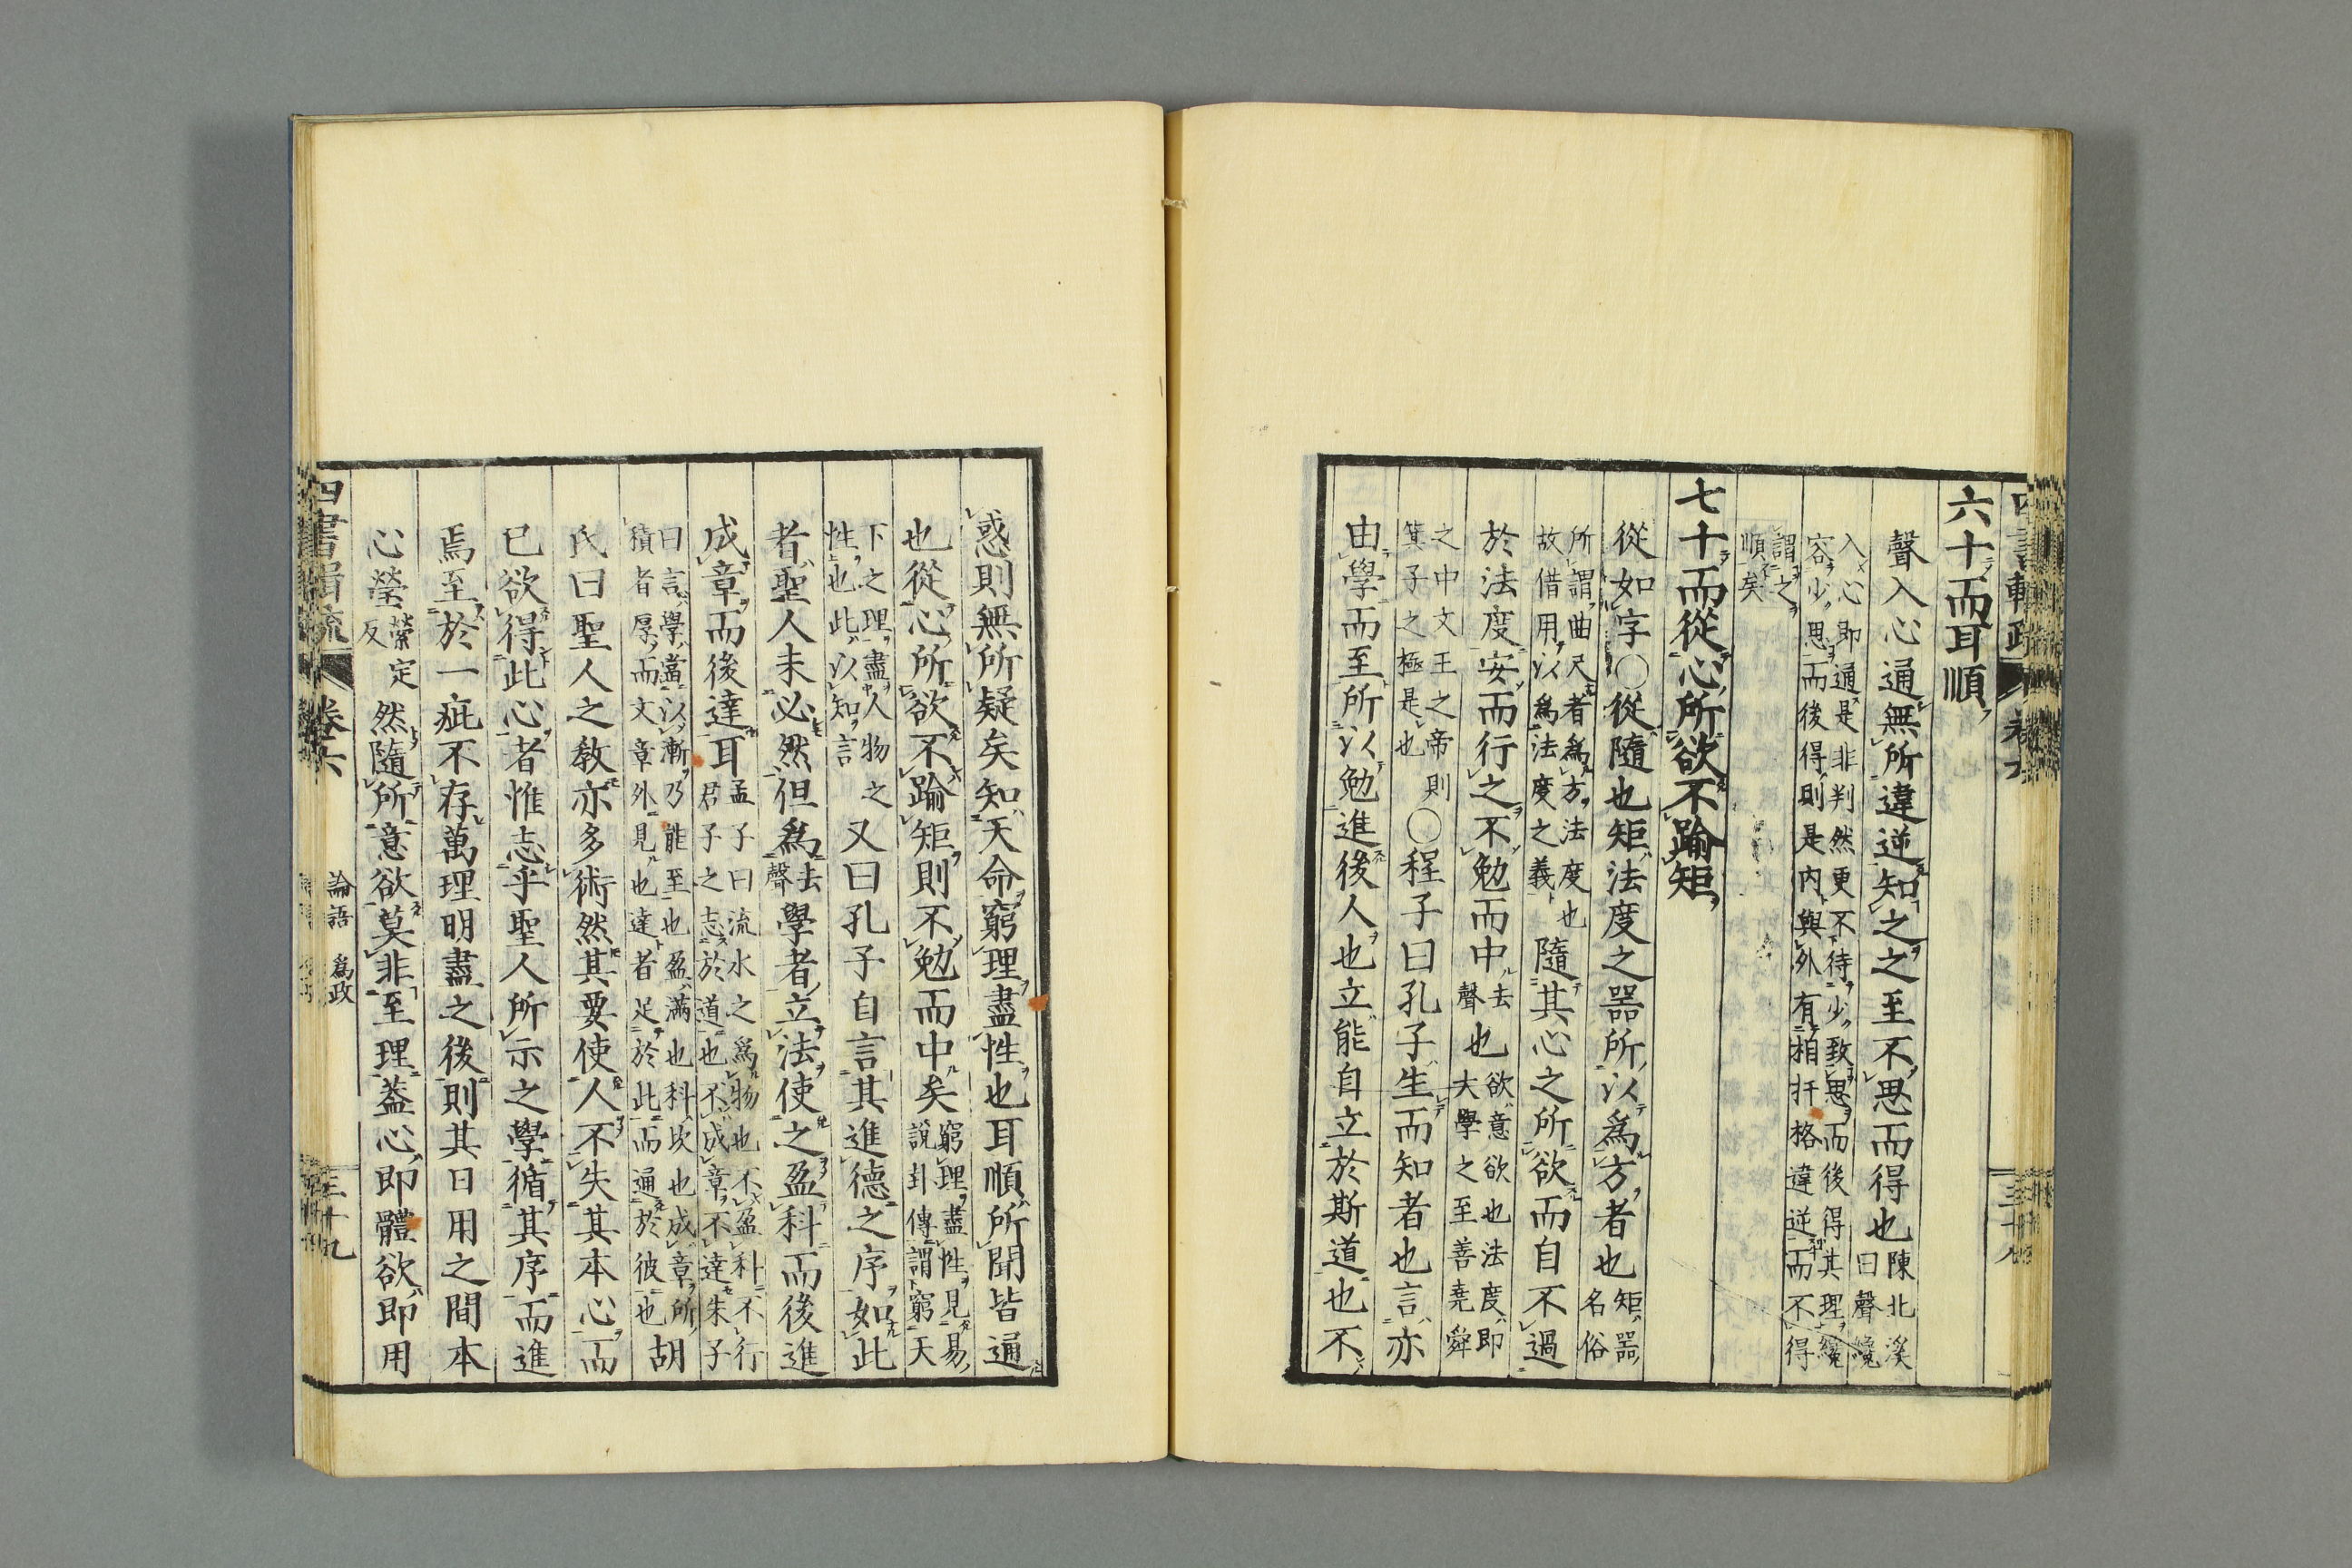 六十而耳順
聲入心通無所違逆知之之至不思而得也陳北溪曰聲纔
入心即通是非判然更不待少致思而後得其理纔
容少思而後得則是内與外有相扞格違逆而不得
謂之
順矣
七十而從心所欲不踰矩
從如字○從隨也矩法度之器所以爲方者也矩器名俗
所謂曲尺者爲方法度也
故借用以爲法度之義隨其心之所欲而自不過
於法度安而行之不勉而中去聲也欲意欲也法度即大學之至善堯舜
之中文王之帝則
箕子之極是也○程子曰孔子生而知者也言亦
由學而至所以勉進後人也立能自立於斯道也不
惑則無所疑矣知天命窮理盡性也耳順所聞皆通
也從心所欲不踰矩則不勉而中矣窮理盡性見易說卦傳謂窮天
下之理盡人物之
性也此以知言又曰孔子自言其進德之序如此
者聖人未必然但爲去聲學者立法使之盈科而後進
成章而後達耳孟子曰流水之爲物也不盈科不行君子之志於道也不成章不達朱子
曰言學當以漸乃能至也盈滿也科坎也成章所
積者厚而文章外見也達者足於此而通於彼也胡
氏曰聖人之教亦多術然其要使人不失其本心而
已欲得此心者惟志乎聖人所示之學循其序而進
焉至於一疵不存萬理明盡之後則其日用之間本
心瑩縈定反然隨所意欲莫非至理蓋心即體欲即用
四書輯疏 卷六 論語 爲政 三十九